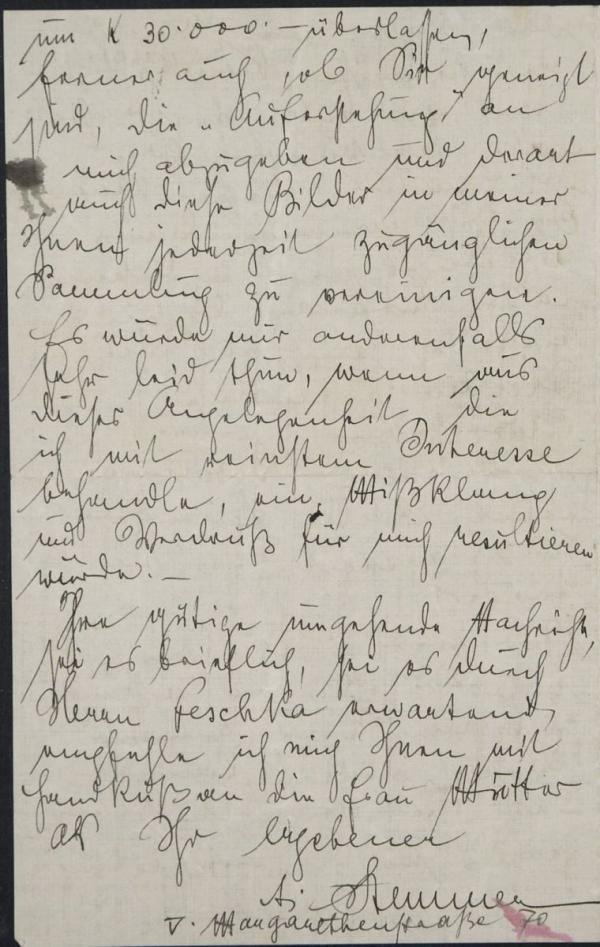 um K 30.000.– überlassen,
ferner auch, ob Sie geneigt
sind, die „Auferstehung“ an
mich abzugeben und derart
auch diese Bilder in meiner
Ihnen jederzeit zugänglichen
Sammlung zu vereinigen.
Es würde mir anderenfalls
sehr leid thun, wenn aus
dieser Angelegenheit, die
ich mit reinstem Interesse
behandle, ein Mißklang
und Verdruß für mich resultieren
würde. –
Ihre gütige umgehende Nachricht,
sei es brieflich, sei es durch
Herrn Peschka erwartend,
empfehle ich mich Ihnen mit
Handkuß an die Frau Mutter
als Ihr ergebener
V. Margarethenstraße 70